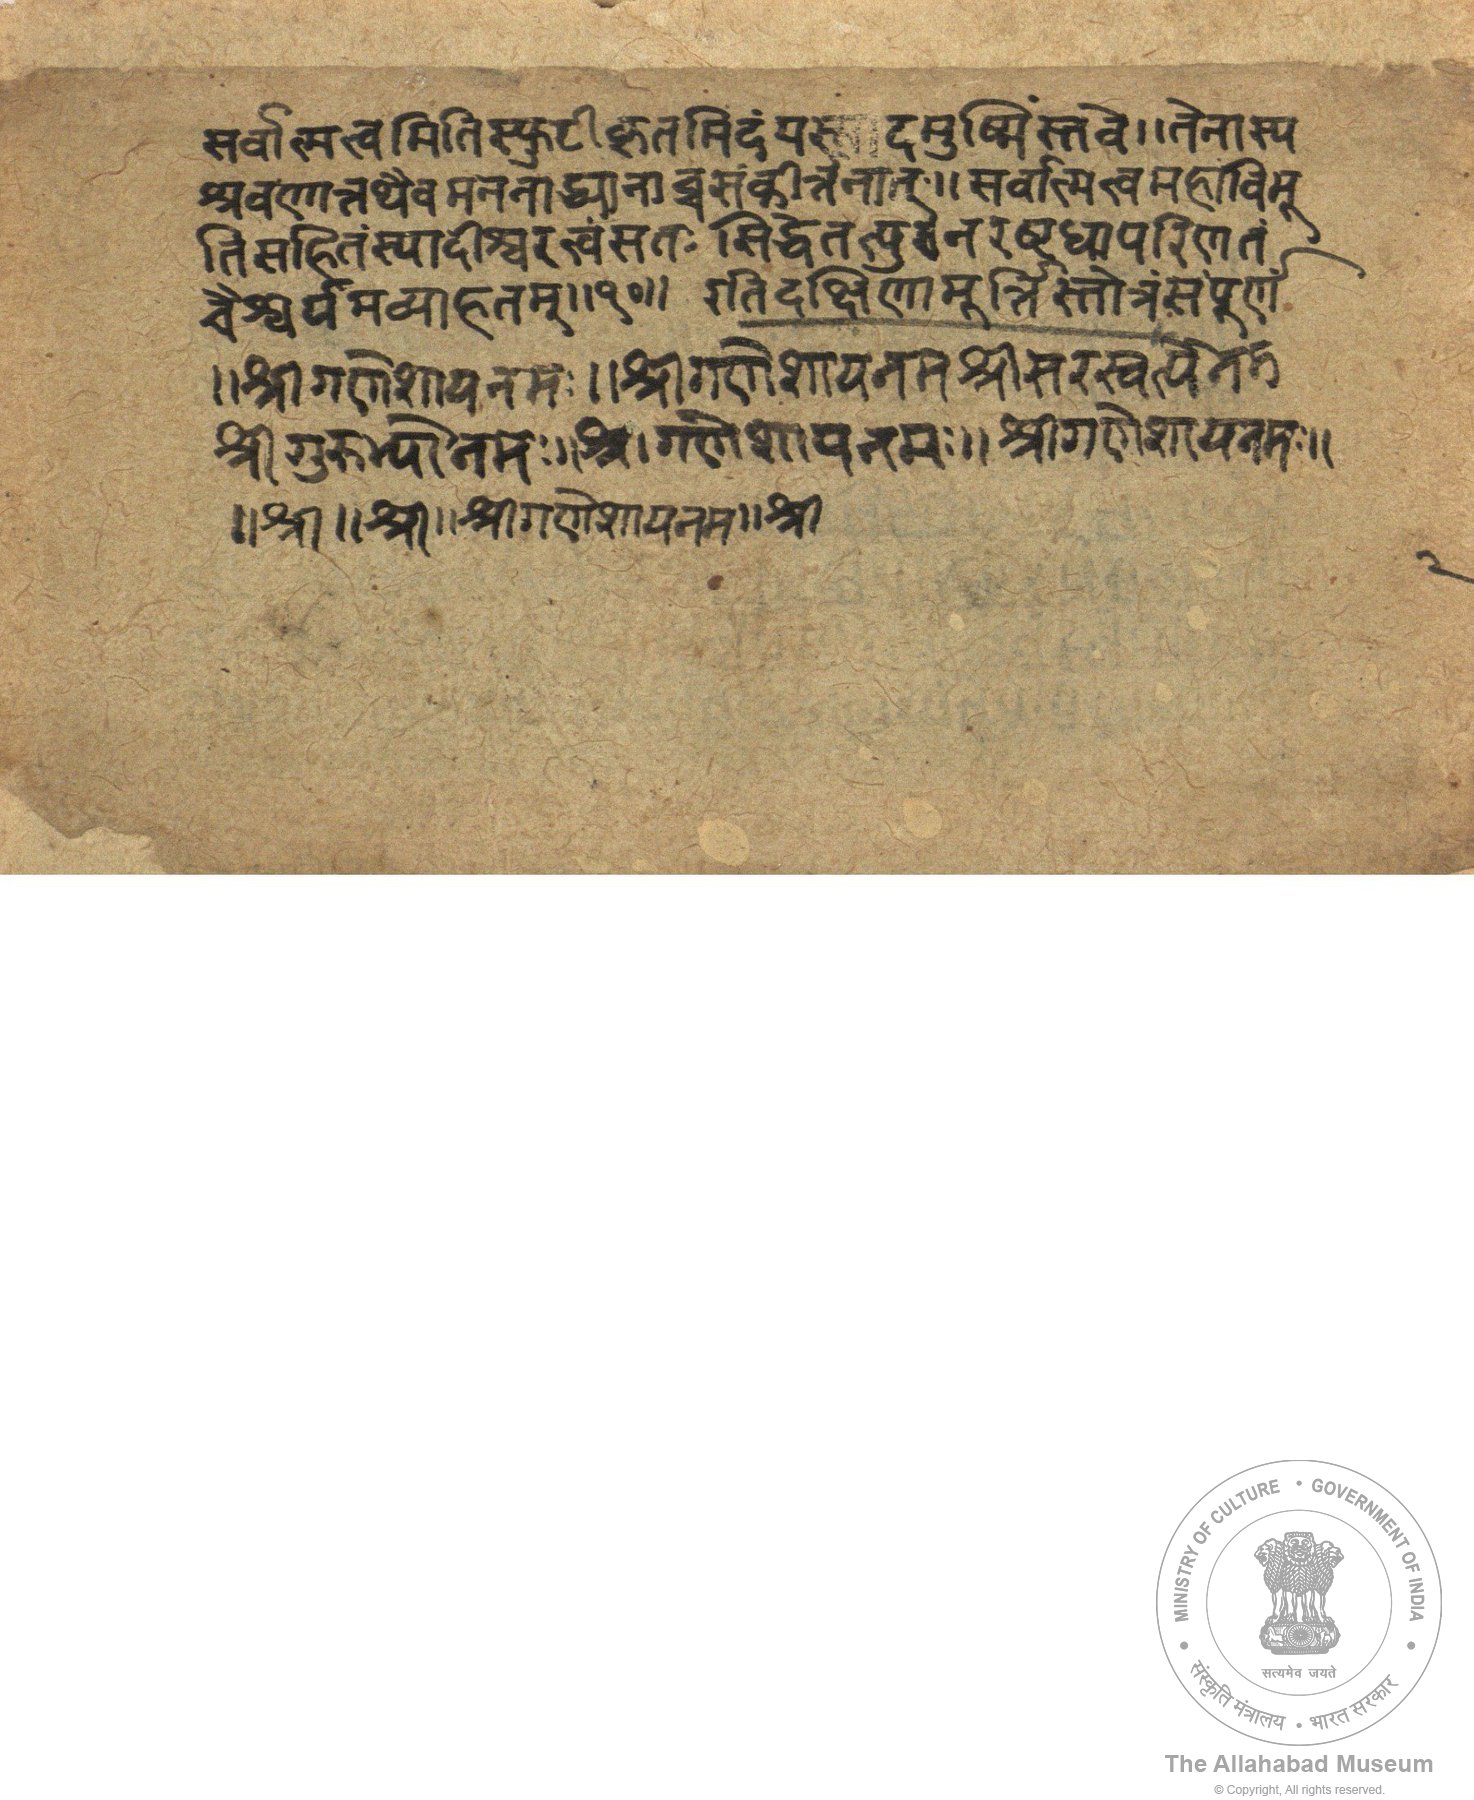 सर्वात्मत्वमितिस्फुटीकृतमिदंयस्मादमुष्मिंस्तवे॥तेनास्य
श्रवणात्तथैवमननाद्ध्यानाच्चसंकीर्त्तनात्॥सर्वात्मत्वमहाविभू
तिसहितंस्यादीश्वरत्वंसतः सिद्धेतत्पुनरष्टधापरिणतं
चैश्वर्यमव्याहतम्॥१०॥ इतिदक्षिणामूर्त्तिस्तोत्रंसंपूर्णं
॥श्रीगणेशायनमः॥श्रीगणेशायनम श्रीसरस्वत्यैनम
श्रीगुरुभ्योनमः॥श्रीगणेशायनमः॥श्रीगणेशायनमः॥
॥श्री॥श्री॥श्रीगणेशायनम॥श्री
२
MINISTRY OF CULTURE • GOVERNMENT OF INDIA
सत्यमेव जयते
संस्कृति मंत्रालय • भारत सरकार
The Allahabad Museum
© Copyright, All rights reserved.